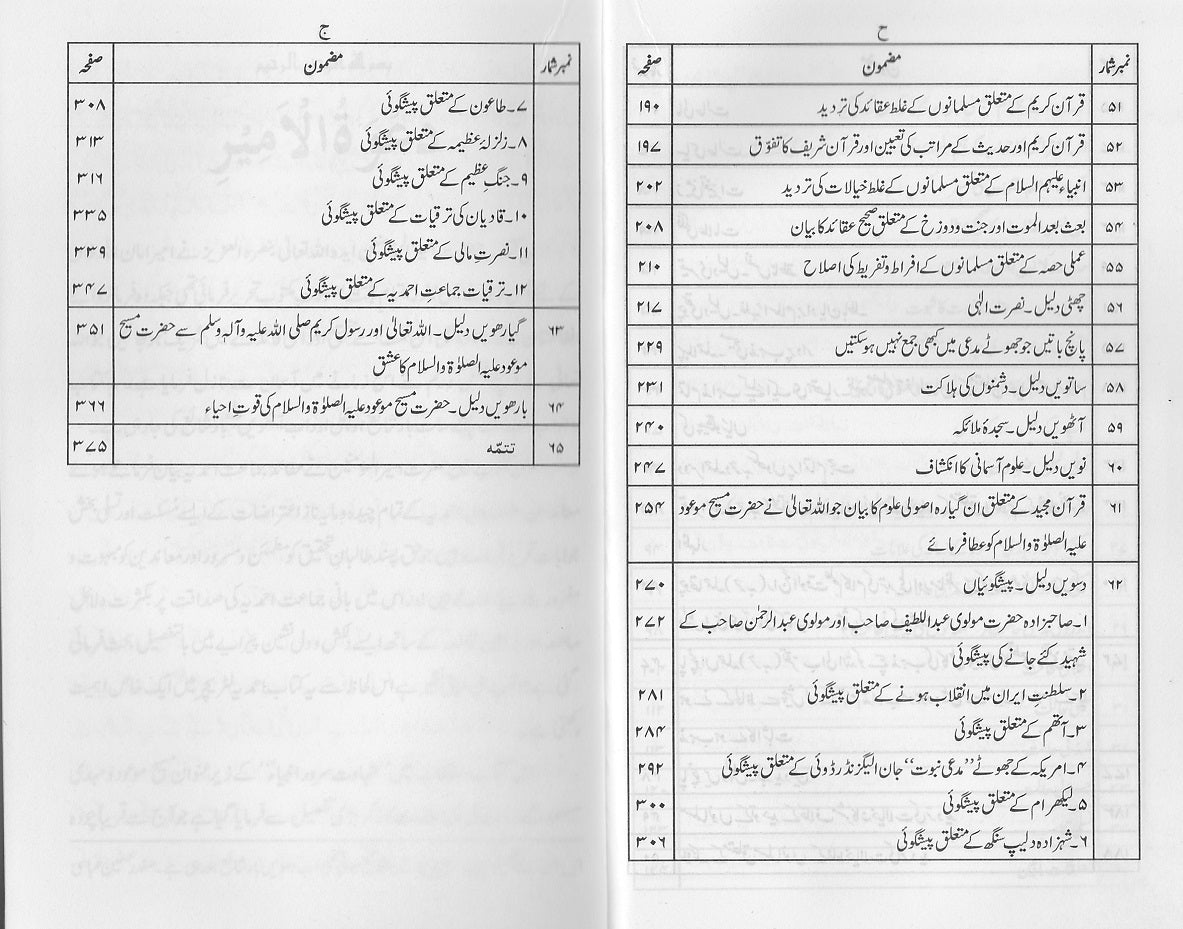 ح
نمبر شمار مضمون صفحہ
۵۱ قرآن کریم کے متعلق مسلمانوں کے غلط عقائد کی تردید ۱۹۰
۵۲ قرآن کریم اور حدیث کے مراتب کی تعیین اور قرآن شریف کا تفوّق ۱۹۷
۵۳ انبیاء علیہم السلام کے متعلق مسلمانوں کے غلط خیالات کی تردید ۲۰۲
۵۴ بعث بعد الموت اور جنت و دوزخ کے متعلق صحیح عقائد کا بیان ۲۰۸
۵۵ عملی حصہ کے متعلق مسلمانوں کے افراط و تفریط کی اصلاح ۲۱۰
۵۶ چھٹی دلیل۔ نصرت الٰہی ۲۱۷
۵۷ پانچ باتیں جو جھوٹے مدعی میں کبھی جمع نہیں ہو سکتیں ۲۲۹
۵۸ ساتویں دلیل۔ دشمنوں کی ہلاکت ۲۳۱
۵۹ آٹھویں دلیل۔ سجدۂ ملائکہ ۲۴۰
۶۰ نویں دلیل۔ علوم آسمانی کا انکشاف ۲۴۷
۶۱ قرآن مجید کے متعلق ان گیارہ اصولی علوم کا بیان جو اللہ تعالیٰ نے حضرت مسیح موعود ۲۵۴
علیہ الصلوٰۃ والسلام کو عطا فرمائے
۶۲ دسویں دلیل۔ پیشگوئیاں ۲۷۰
۱۔ صاحبزادہ حضرت مولوی عبد اللطیف صاحب اور مولوی عبد الرحمٰن صاحب کے ۲۷۲
شہید کئے جانے کی پیشگوئی
۲۔ سلطنتِ ایران میں انقلاب ہونے کے متعلق پیشگوئی ۲۸۱
۳۔ آتھم کے متعلق پیشگوئی ۲۸۴
۴۔ امریکہ کے جھوٹے ”مدعی نبوت“ جان الیگزنڈر ڈوئی کے متعلق پیشگوئی ۲۹۲
۵۔ لیکھرام کے متعلق پیشگوئی ۳۰۰
۶۔ شہزادہ دلیپ سنگھ کے متعلق پیشگوئی ۳۰۶
ج
نمبر شمار مضمون صفحہ
۷۔ طاعون کے متعلق پیشگوئی ۳۰۸
۸۔ زلزلۂ عظیمہ کے متعلق پیشگوئی ۳۱۳
۹۔ جنگِ عظیم کے متعلق پیشگوئی ۳۱۶
۱۰۔ قادیان کی ترقیات کے متعلق پیشگوئی ۳۳۵
۱۱۔ نصرتِ مالی کے متعلق پیشگوئی ۳۳۹
۱۲۔ ترقیات جماعتِ احمدیہ کے متعلق پیشگوئی ۳۴۷
۶۳ گیارھویں دلیل۔ اللہ تعالیٰ اور رسول کریم صلی اللہ علیہ وآلہ وسلم سے حضرت مسیح ۳۵۱
موعود علیہ الصلوٰۃ والسلام کا عشق
۶۴ بارھویں دلیل۔ حضرت مسیح موعود علیہ الصلوٰۃ والسلام کی قوتِ احیاء ۳۶۶
۶۵ تتمّہ ۳۷۵